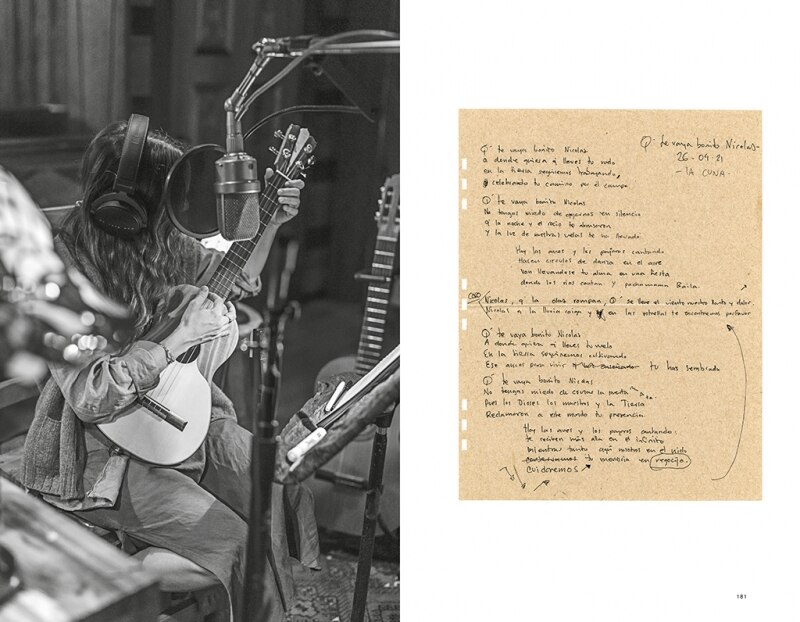 Q' te vaya bonito Nicolas-
26-04-21
- LA CUNA -
Q' te vaya bonito Nicolas
a donde quiera q lleves tu vuelo
en la tierra seguiremos trabajando,
celebrando tu camino por el campo
Q' te vaya bonito Nicolas
No tengas miedo de dejarnos en silencio
q la noche y el rocio te
y la luz de nuestras velas te ha llevado
Hoy las aves y los pajaros cantando
Hacen circulos de danza en el aire
Van llevandose tu alma en una fiesta
donde los rios cantan y pachamama Baila.
CORO
Nicolas, q' la olas rompan, Q' se lleve el viento nuestro llanto y dolor,
Nicolas q la lluvia caiga y en las estrellas te encontremos
Q' te vaya bonito Nicolas
A donde quiera q lleves tu vuelo
En la tierra seguiremos cultivando
Esas ansias para vivir q tu has sembrado
Q' te vaya bonito Nicolas
No tengas miedo de cruzar la puerta
Pues los Dioses los muertos y la Tierra
Reclamaron a este mundo tu presencia.
Hoy las aves y los pajaros cantando:
te reciben más alla en el infinito
Mientras tanto aqui nosotros en el nido
tu memoria en regocijo.
Cuidaremos
181